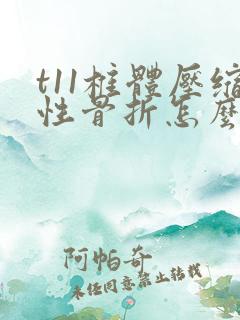 t11柱體壓縮
性骨折怎麼
阿帕奇
未经同意禁止转载